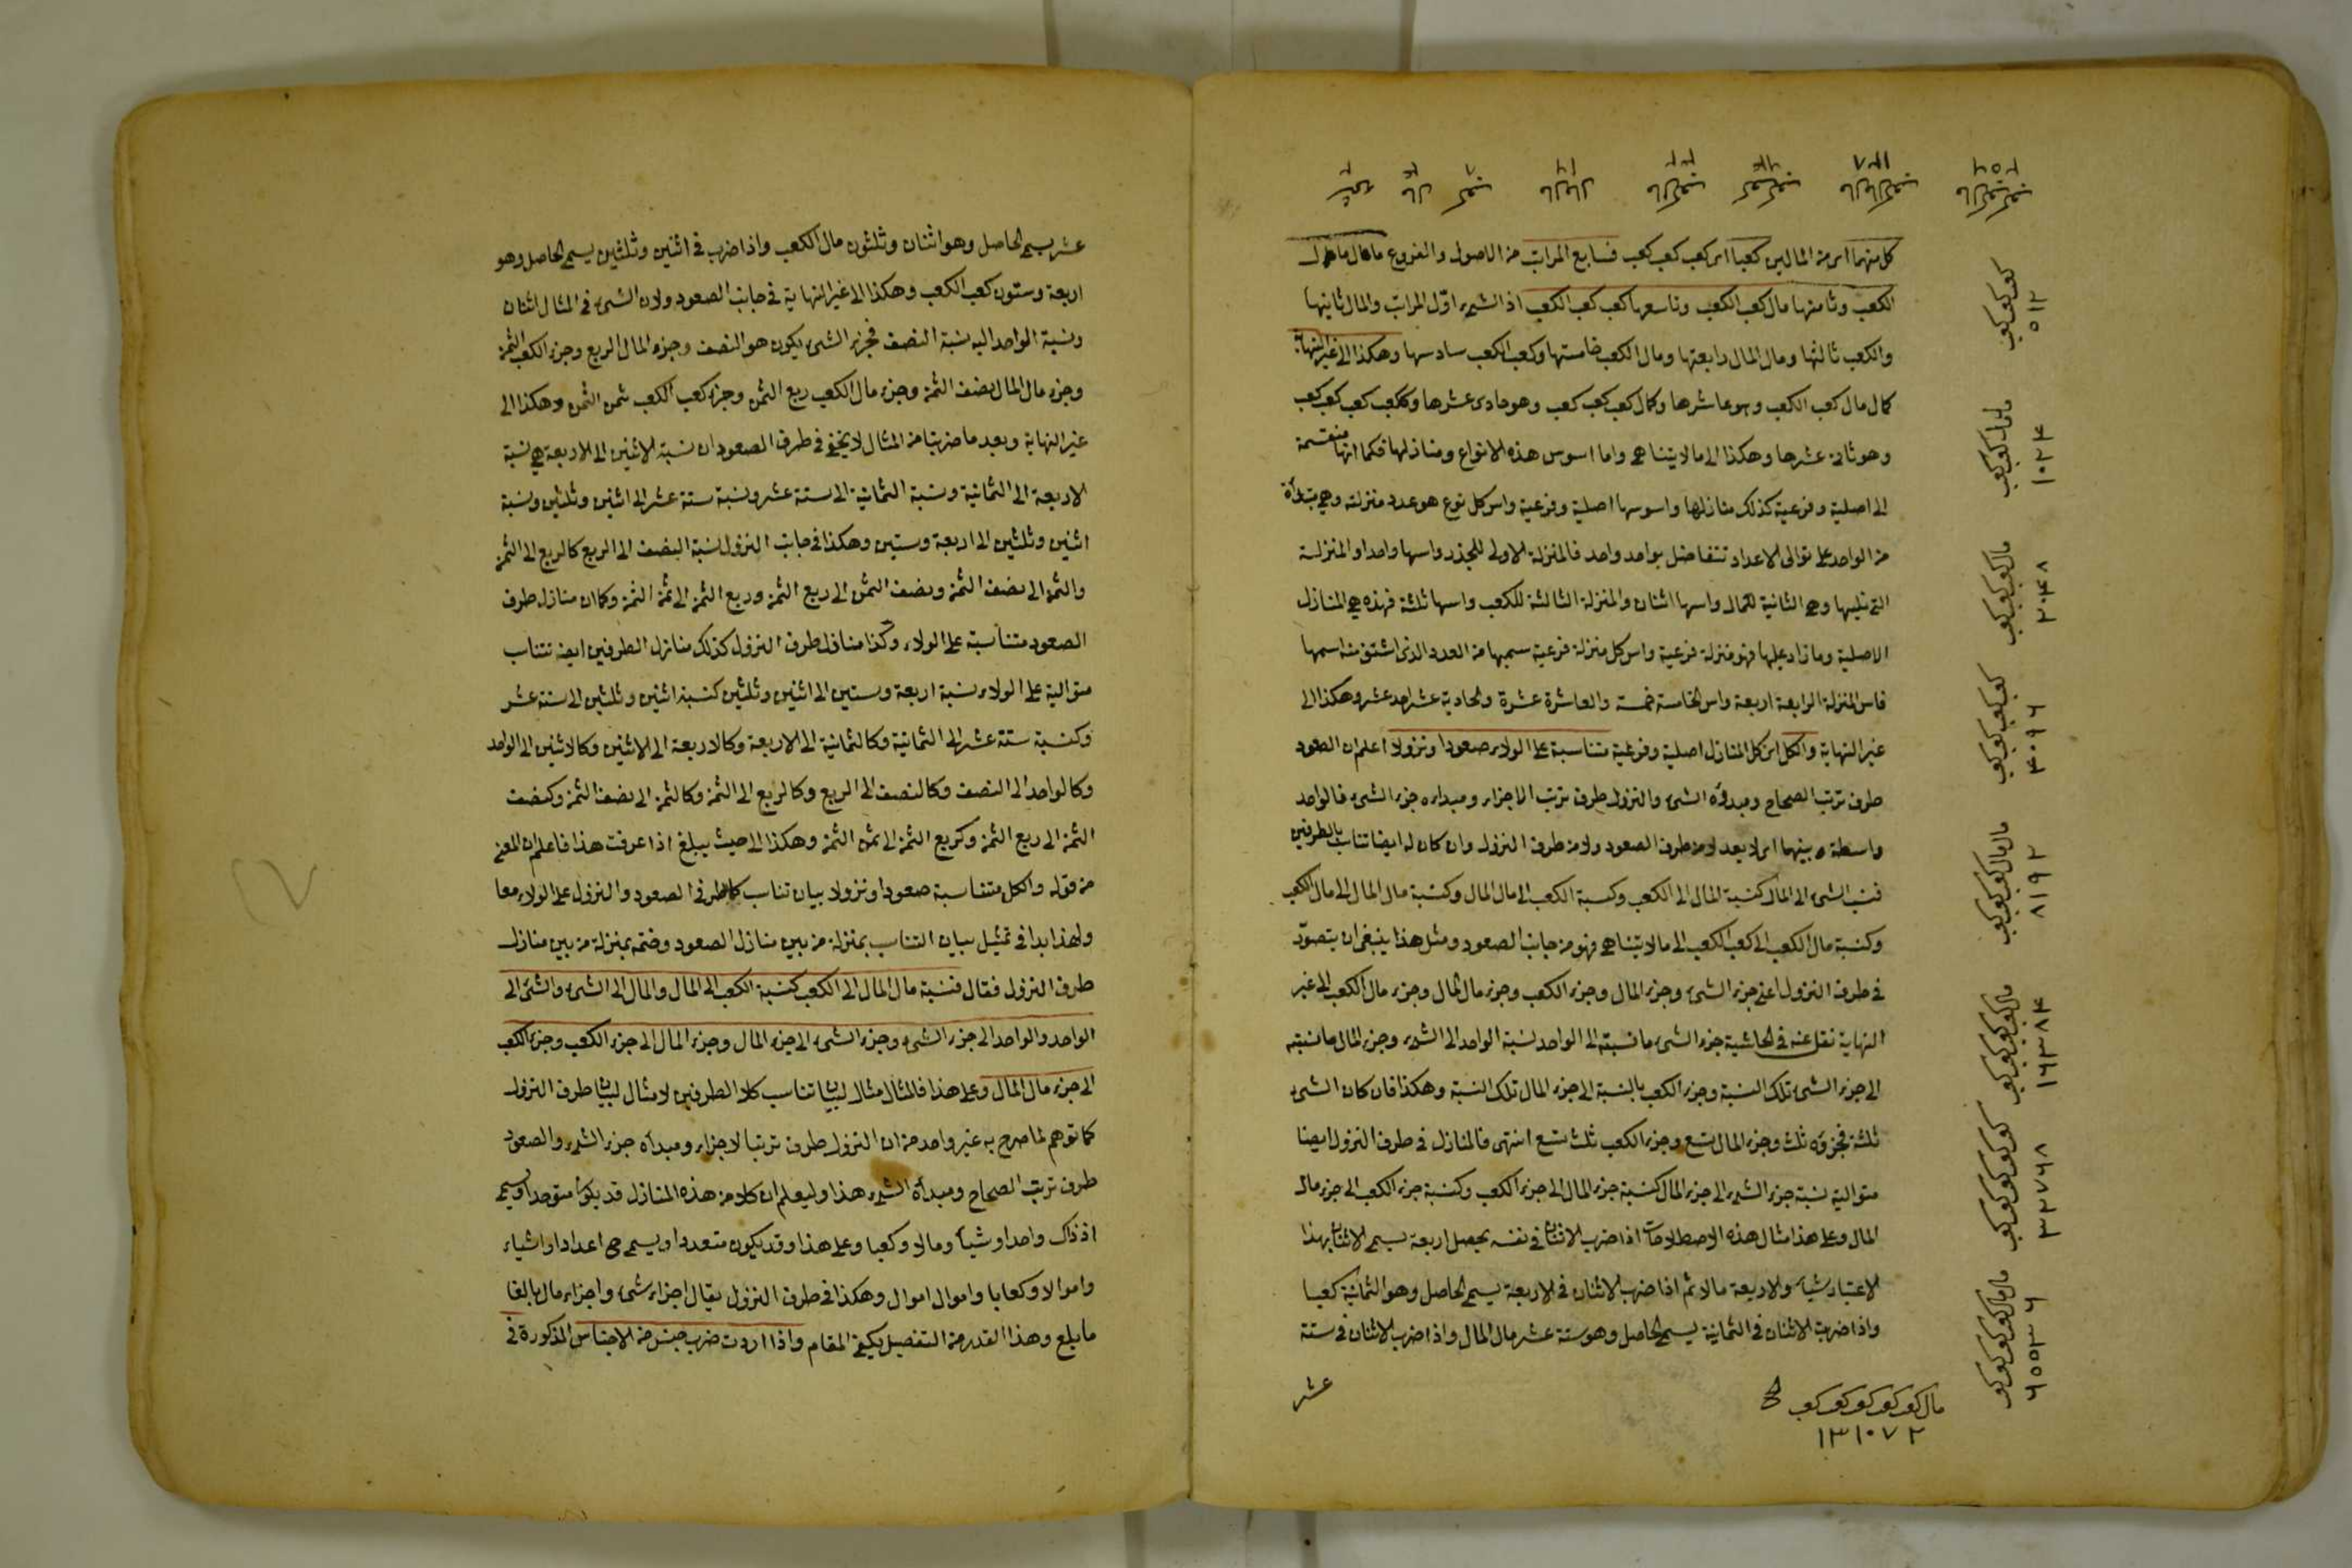 كل منهما اى من المالين كعبا اى كعب كعب كعب فسابع المراتب من الاصول والفروع مال مال
الكعب وثامنها مال كعب الكعب وتاسعها كعب كعب الكعب اذ الشئ اوّل المراتب والمال ثانيها
والكعب ثالثها ومال المال رابعتها ومال الكعب خامستها وكعب الكعب سادسها وهكذا الى غير النهاية
كمال مال كعب الكعب وهو عاشرها وكمال كعب كعب كعب وهو حادى عشرها وككعب كعب كعب كعب
وهو ثانى عشرها وهكذا الى ما لا يتناهى واما اسوس هذه الانواع ومنازلها فكما انها منقسمة
الى اصلية وفرعية كذلك منازلها واسوسها اصلية وفرعية واس كل نوع هو عدد منزلته وهى مبتدأة
من الواحد على توالى الاعداد تتفاضل بواحد واحد فالمنزلة الاولى للجذر واسها واحد او المنزلة
التى تليها وهى الثانية للمال واسها اثنان والمنزلة الثالثة للكعب واسها ثلثة فهذه هى المنازل
الاصلية وما زاد عليها فهو منزلة فرعية واس كل منزلة فرعية سميها من العدد الذى اشتق منه اسمها
فاس المنزلة الرابعة اربعة واس الخامسة خمسة والعاشرة عشرة والحادية عشر احد عشر وهكذا الى
غير النهاية والكل اى كل المنازل اصلية وفرعية متناسبة على الولاء صعودا ونزولا اعلم ان الصعود
طرف ترتب الصحاح ومبدؤه الشئ والنزول طرف ترتب الاجزاء ومبداه جزء الشئ فالواحد
واسطة بينهما اى لا يعد لا من طرف الصعود ولا من طرف النزول وان كان له ايضا تناسب بالطرفين
فنسبة الشئ الى المال كنسبة المال الى الكعب وكنسبة الكعب الى مال المال وكنسبة مال المال الى مال الكعب
وكنسبة مال الكعب الى كعب الكعب الى ما لا يتناهى فهو من جانب الصعود ومثل هذا ينبغى ان يتصوّر
فى طرف النزول اعنى جزء الشئ وجزء المال وجزء الكعب وجزء مال المال وجزء مال الكعب الى غير
النهاية نقل عنه فى الحاشية جزء الشئ ما نسبته الى الواحد نسبة الواحد الى الشئ وجزء المال ما نسبته
الى جزء الشئ تلك النسبة وجزء الكعب بالنسبة الى جزء المال تلك النسبة وهكذا فان كان الشئ
ثلثة فجزؤه ثلث وجزء المال تسع وجزء الكعب ثلث تسع انتهى فالمنازل فى طرف النزول ايضا
متوالية نسبة جزء الشئ الى جزء المال كنسبة جزء المال الى جزء الكعب وكنسبة جزء الكعب الى جزء مال
المال وعلى هذا مثال هذه الاصطلاحات اذا ضرب الاثنان فى نفسه يحصل اربعة يسمى الاثنان بهذا
الاعتبار شيئا والاربعة مالا ثم اذا ضرب الاثنان فى الاربعة يسمى الحاصل وهو الثمانية كعبا
واذا ضرب الاثنان فى الثمانية يسمى الحاصل وهو ستة عشر مال المال واذا ضرب الاثنان فى ستة
عشر
كعب كعب كعب
٥١٢
مال مال كعب كعب
١٠٢٤
مال كعب كعب كعب
٢٠٤٨
كعب كعب كعب كعب
٤٠٩٦
مال مال كعب كعب كعب
٨١٩٢
مال كعب كعب كعب كعب
١٦٣٨٤
كعب كعب كعب كعب كعب
٣٢٧٦٨
مال مال كعب كعب كعب كعب
٦٥٥٣٦
مال كعب كعب كعب كعب كعب
١٣١٠٧٢
عشر يسمى الحاصل وهو اثنان وثلثون مال الكعب واذا ضرب فى اثنين وثلثين يسمى الحاصل وهو
اربعة وستون كعب الكعب وهكذا الى غير النهاية فى جانب الصعود ولان الشئ فى المثال اثنان
ونسبة الواحد اليه نسبة النصف فجزء الشئ يكون هو النصف وجزء المال الربع وجزء الكعب الثمن
وجزء مال المال نصف الثمن وجزء مال الكعب ربع الثمن وجزء كعب الكعب ثمن الثمن وهكذا الى
غير النهاية وبعد ما ضربنا من المثال لا يخفى فى طرف الصعود ان نسبة الاثنين الى الاربعة هى نسبة
الاربعة الى الثمانية ونسبة الثمانية الى ستة عشر ونسبة ستة عشر الى اثنين وثلثين ونسبة
اثنين وثلثين الى اربعة وستين وهكذا فى جانب النزول نسبة النصف الى الربع كالربع الى الثمن
والثمن الى نصف الثمن ونصف الثمن الى ربع الثمن وربع الثمن الى ثمن الثمن وكما ان منازل طرف
الصعود متناسبة على الولاء وكذا منازل طرف النزول كذلك منازل الطرفين ايضا تتناسب
متوالية على الولاء نسبة اربعة وستين الى اثنين وثلثين كنسبة اثنين وثلثين الى ستة عشر
وكنسبة ستة عشر الى الثمانية وكالثمانية الى الاربعة وكالاربعة الى الاثنين وكالاثنين الى الواحد
وكالواحد الى النصف وكالنصف الى الربع وكالربع الى الثمن وكالثمن الى نصف الثمن وكنصف
الثمن الى ربع الثمن وكربع الثمن الى ثمن الثمن وهكذا الى حيث يبلغ اذا عرفت هذا فاعلم ان المعنى
من قوله والكل متناسبة صعودا ونزولا بيان تناسب كلا طرفى الصعود والنزول على الولاء معا
ولهذا بدا فى تمثيل بيان التناسب بمنزلة من بين منازل الصعود وختم بمنزلة من بين منازل
طرف النزول فقال فنسبة مال المال الى الكعب كنسبة الكعب الى المال والمال الى الشئ والشئ الى
الواحد والواحد الى جزء الشئ وجزء الشئ الى جزء المال وجزء المال الى جزء الكعب وجزء الكعب
الى جزء مال المال وعلى هذا فالمثال مثال لبيان تناسب كلا الطرفين لا مثال لبيان طرف النزول
كما توهم لما صرح به غير واحد من ان النزول طرف ترتب الاجزاء ومبدأه جزء الشئ والصعود
طرف ترتب الصحاح ومبدأه الشئ هذا وليعلم ان كلا من هذه المنازل قد يكون متوحدا ويسمى
اذ ذاك واحدا وشيأ ومالا وكعبا وعلى هذا وقد يكون متعددا ويسمى ح اعدادا واشياء
واموالا وكعابا واموال اموال وهكذا فى طرف النزول يقال اجزاء شئ واجزاء مال بالغا
ما بلغ وهذا القدر من التفصيل يكفى المقام واذا اردت ضرب جنس من الاجناس المذكورة فى